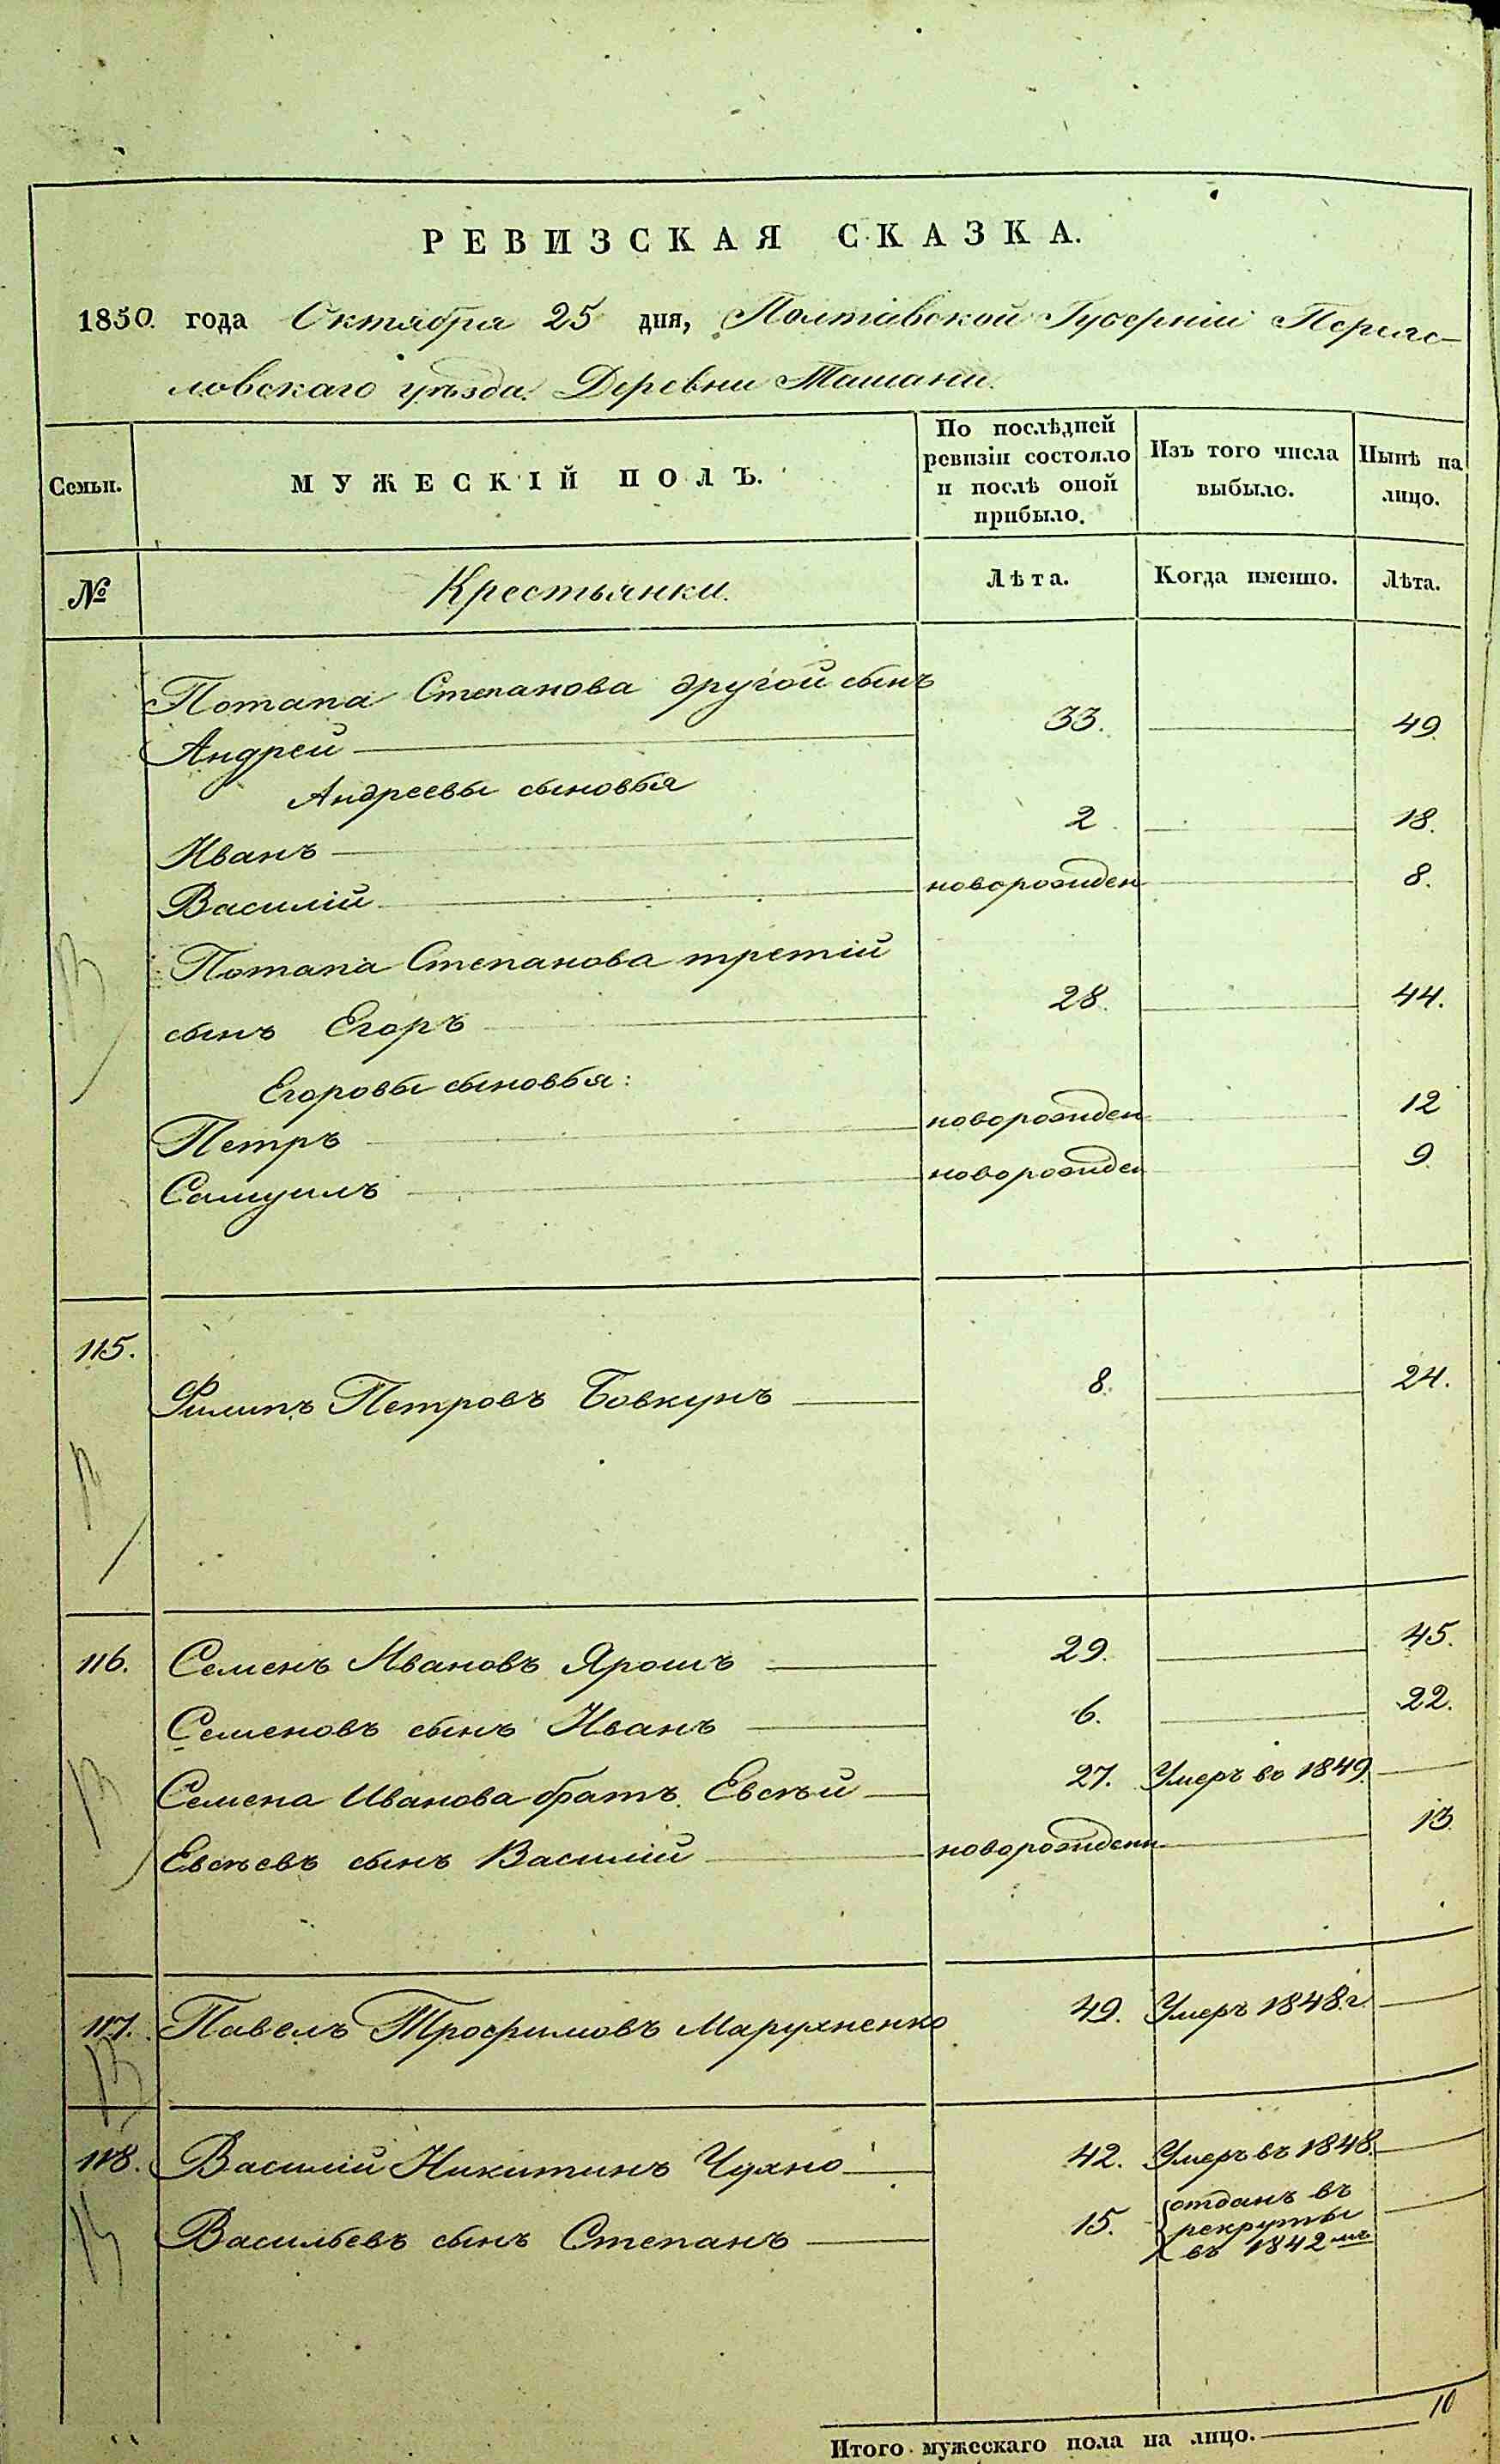 РЕВИЗСКАЯ СКАЗКА.
1850. года Октября 25 дня, Полтавской Губерніи Переяс-
ловскаго уѣзда. Деревни Ташани.
Семьи.
МУЖЕСКІЙ ПОЛЪ.
По послѣдней
ревизіи состояло
и послѣ оной
прибыло.
Изъ того числа
выбыло.
Нынѣ на
лицо.
№
Крестьянки.
Лѣта.
Когда именно.
Лѣта.
Потапа Степанова другой сынъ
Андрей 33. 49
Андреевы сыновья
Иванъ 2 18.
Василій новорожден 8.
Потапа Степанова третій
сынъ Егоръ 28. 44.
Егоровы сыновья:
Петръ новорожден 12
Самуилъ новорожден 9
115.
Филипъ Петровъ Бовкунъ 8. 24.
116. Семенъ Ивановъ Ярошъ 29. 45.
Семеновъ сынъ Иванъ 6. 22.
Семена Иванова братъ Евсѣй 27. Умеръ во 1849.
Евсѣевъ сынъ Василій новорожденн 13.
117. Павелъ Трофимовъ Марухненко 49. Умеръ 1848.г.
118. Василій Никитинъ Чухно 42. Умеръ въ 1848.
Васильевъ сынъ Степанъ 15. отданъ въ
рекруты
въ 1842мъ
Итого мужескаго пола на лицо. 10